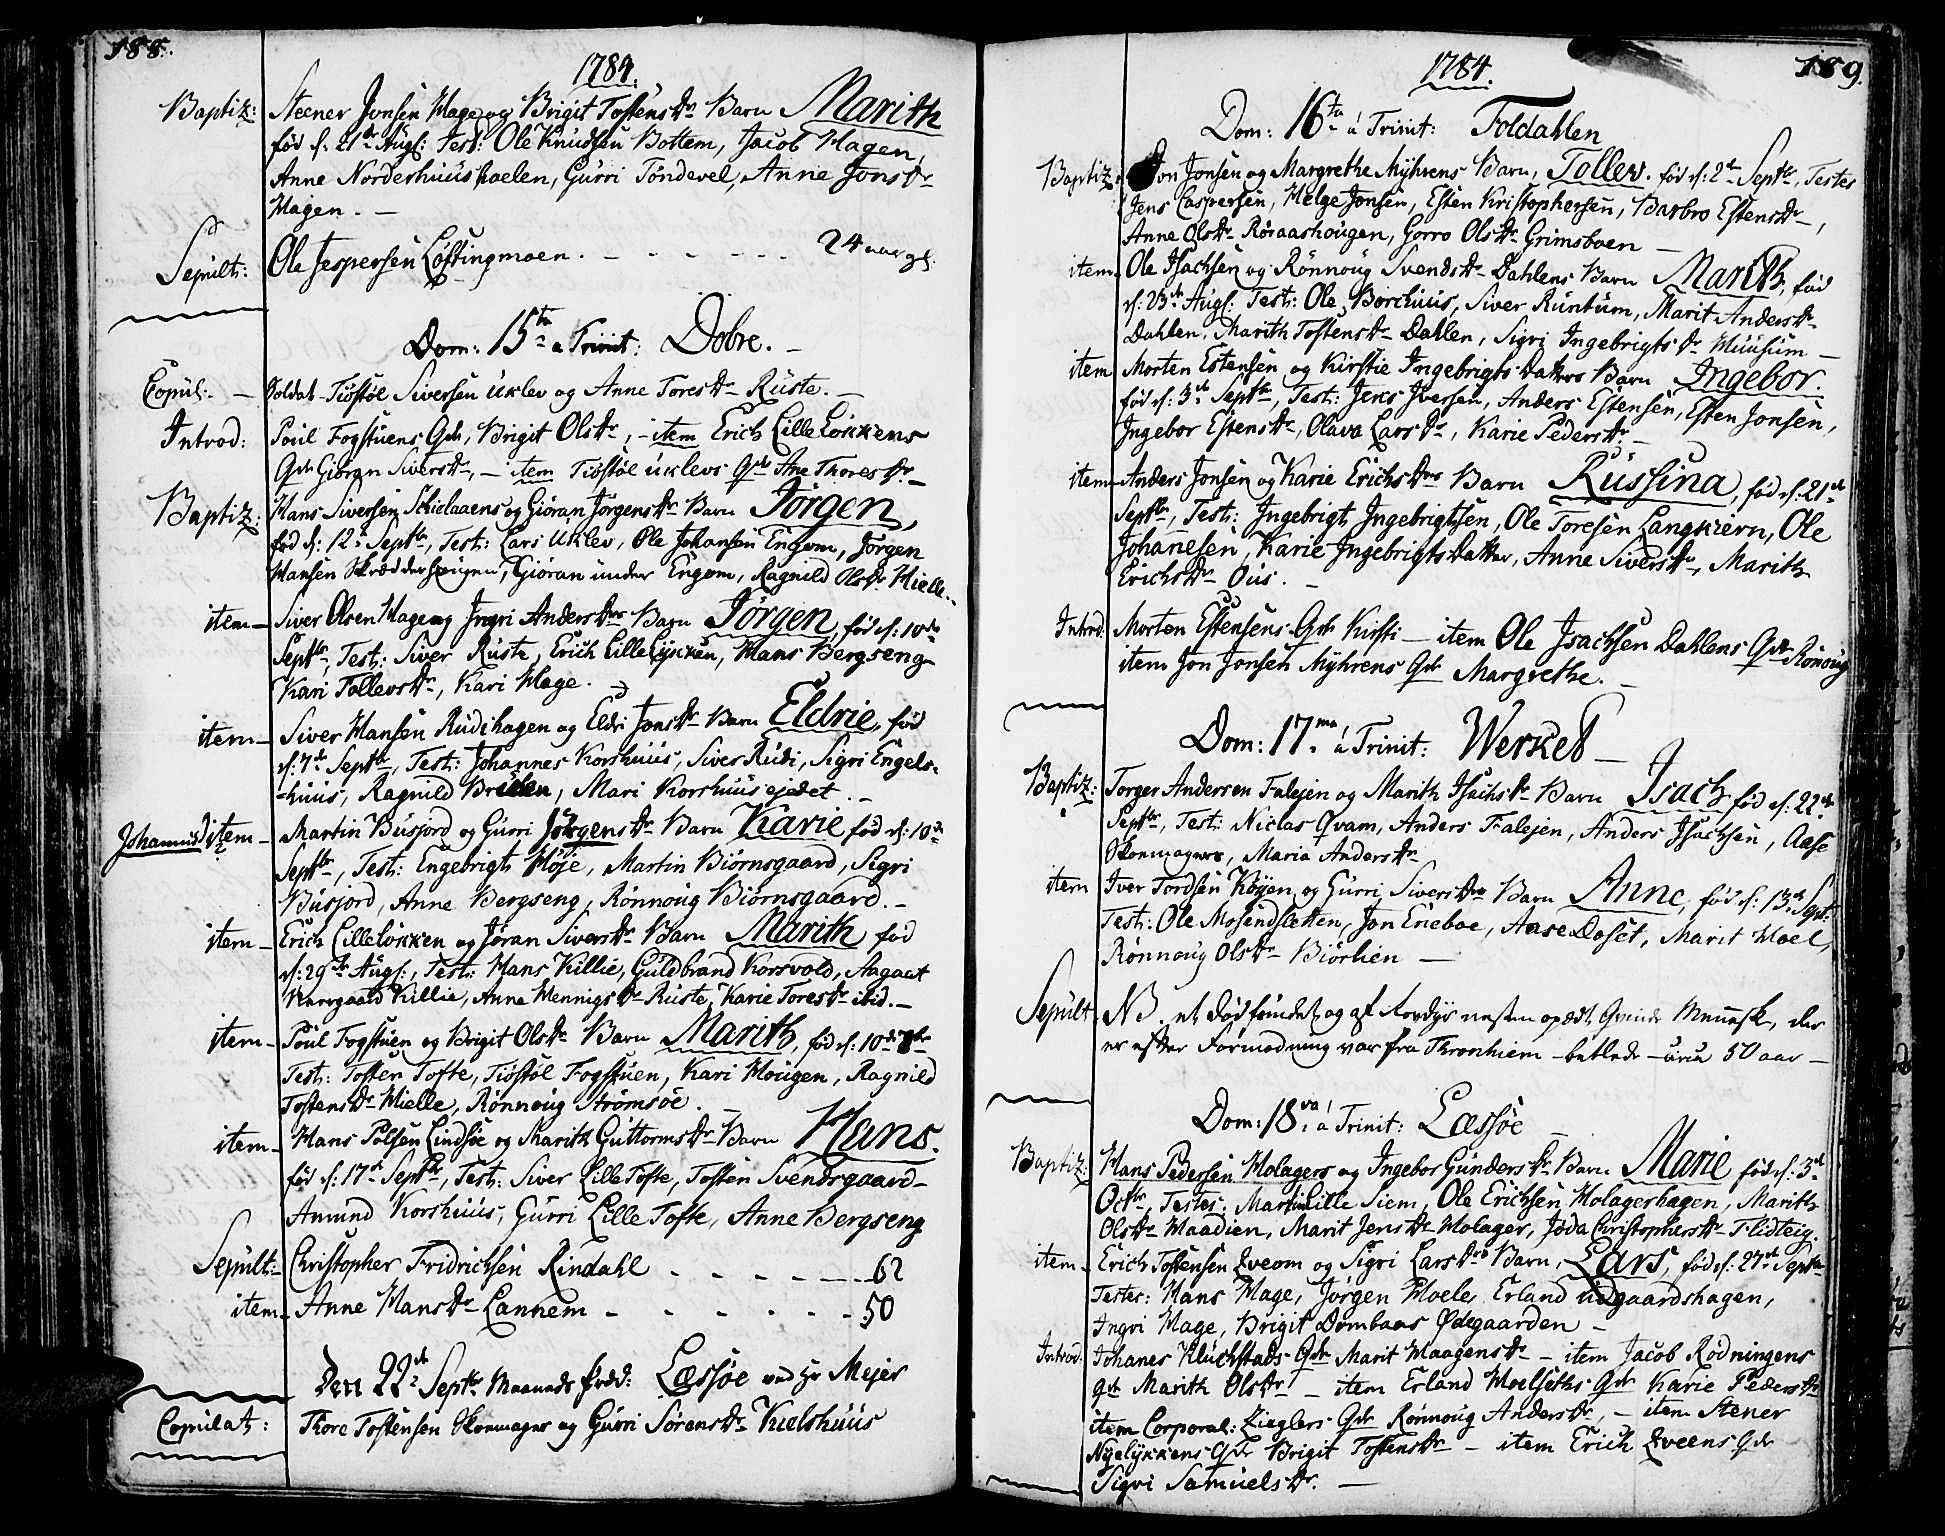 188.
1784.
Baptiz: Steener Jonsen Hage og Brigit Tostens Dr Barn Marith
fød d: 21de Aug: Test: Ole Knudsen Bottem, Jacob Hagen,
Anne Norderhuus kaelen, Gurri Töndevel, Anne Jons Dr
Hagen. —
Sepult: Ole Jespersen Löftingmoen. — — — — — 24 aar gl.
Dom: 15ta a Trinit: Dobre. —
Copul: — Soldat Tiöstöl Siversen Uklev og Anne Tores Dr Rüste. —
Introd: Poul Fogstuens Qde, Brigit Ols Dr, — item Erich Lille Lökkens
Qde Giöran Sivers Dr, — item Tiöstöl Uklevs Qde Ane Thores Dr. —
Baptiz: Hans Siversen Skielaaens og Giöran Jörgens Dr Barn Jörgen,
fød d: 12te Septbr, Test: Lars Uklev, Ole Johansen Engem, Jörgen
Hansen Skrædder , Giöran under Engem, Ragnild Ols Dr Hielle. —
item — Siver Olsen Hage og Ingri Anders Drs Barn Jörgen, fød d: 10de
Septbr, Test: Siver Rüste, Erich Lille Lykken, Hans Bergseng
Kari Tollevs Dr, Kari Hage. —
item — Siver Hansen Rudihagen og Eldri Jons Dr Barn Eldrie, fød
d: 7de Septbr, Test: Johannes Korshuus, Siver Rudi, Sigri Engels-
-huus, Ragnild , Mari Korshuusejedet. —
Johannis D item — Martin Busjord og Gurri Jörgens Dr Barn Karie fød d: 10de
Septbr, Test: Engebrigt Höje, Martin Biörnsgaard, Sigri
Busjord, Anne Bergseng, Rönnoug Biörnsgaard. —
item — Erich Lillelökken og Jöran Sivers Dr Barn Marith fød
d: 29de Aug:, Test: Hans Killie, Guldbrand Korsvold, Aagaat
Killie, Anne Hennigs Dr Rüste, Karie Tores Dr ibid. —
item — Poul Fogstuen og Brigit Ols Dr Barn Marith, fød d: 10de 7br
Test: Tosten Tofte, Tiöstöl Fogstuen, Kari Hougen, Ragnild
Tostens Dr Hielle, Rönnoug Strömsöe. —
item — Hans Polsen Lindsöe og Marith Guttorms Dr Barn Hans.
fød d: 17de Septbr, Test: Siver Lille Tofte, Tosten Svendsgaard —
Amund Korshuus, Gurri Lille Tofte, Anne Bergseng
Sepult: — Christopher Fridrichsen Rindahl — — — — — 62
item — Anne Hans Dr Lannem — — — — — 50
Den 22de Septbr Maaneds Præd: Læssöe ved Hr Mejer
Copulat: Thore Tostensen Skomager og Gurri Sörens Dr Kielshuus
189.
1784.
Dom: 16ta á Trinit: Foldahlen
Baptiz: Jon Jonsen og Margrethe Myhrens Barn, Tollev. fød d: 2de Septbr, Testes
Jens Caspersen, Helge Jonsen, Esten Kristophersen, Barbro Estens Dr,
Anne Ols Dr Röraashougen, Gorro Ols Dr Grimsboen —
item — Ole Isachsen og Rönnoug Svends Dr Dahlens Barn Marith, fød
d: 23de Aug: Test: Ole Borchuus, Siver Runtum, Marit Anders Dr
Dahlen, Marith Tostens Dr Dahlen, Sigri Ingebrigts Dr Muusum —
item Morten Estensen og Kirstie Ingebrigts Datters Barn Ingebor.
fød d: 3de Septbr, Test: Jens Iversen, Anders Estensen, Esten Jonsen,
Ingebor Estens Dr, Olava Lars Dr, Karie Peders Dr —
item — Anders Jonsen og Karie Erichs Drs Barn Russina, fød d: 21de
Septbr, Test: Ingebrigt Ingebrigtsen, Ole Toresen Langkiern, Ole
Johanesen, Karie Ingebrigts Datter, Anne Sivers Dr, Marith
Erichs Dr Ous. —
Introd: Morten Estensens Qde Kirsti — item Ole Isachsen Dahlens Qde Rönoug
item Jon Jonsen Myhrens Qde Margrethe. —
Dom: 17ma á Trinit: Werket —
Baptiz: Torger Andersen Falejen og Marith Isachs Dr Barn Isach fød d: 22de
Septbr, Test: Niclas Qvam, Anders Falejen, Anders Isachsen, Aase
Skomagers, Maria Anders Dr
item Iver Tordsen Köyen og Gurri Sivers Drs Barn Anne, fød d: 13de Sept:
Test: Ole Mosendsletten, Jon Eneboe, Aase Doset, Marit Moel,
Rönnoug Ols Dr Biörlien —
Sepult: NB. et dödfundet og af Kovdyr næsten opædt Qvinde Mennesk, der
er efter Formodning var fra Tronhiem — betlede — circa 50 aar —
Dom: 18va á Trinit: Læssöe —
Baptiz: Hans Pedersen Holagers og Ingebor Gunders Dr Barn Marie fød d: 3de
Octbr, Testes: Martin Lille Siem, Ole Erichsen Holagerhagen, Marith
Ols Dr Maadien, Marit Jens Dr Holager, Jöda Christophers Dr Flidteig.
item — Erich Tostensen Zveom og Sigri Lars Drs Barn, Lars, fød d: 27de Septbr
Testes: Hans Hage, Jörgen Hoele, Erland Udgaardshagen,
Ingri Hage, Brigit Dombaas Ödegaarden —
Introd: Johanes Kluchstads Qde Marit Haagens Dr — item Jacob Rödningens
Qde Marith Ols Dr — item Erland Moelsetes Qde Karie Peders Dr
item Corporal: Zieglers Qde Rönnoug Anders Dr, — item Stener
Nyelykkens Qde Brigit Tostens Dr — item Erich Zveens Qde
Sigri Samuels Dr. —